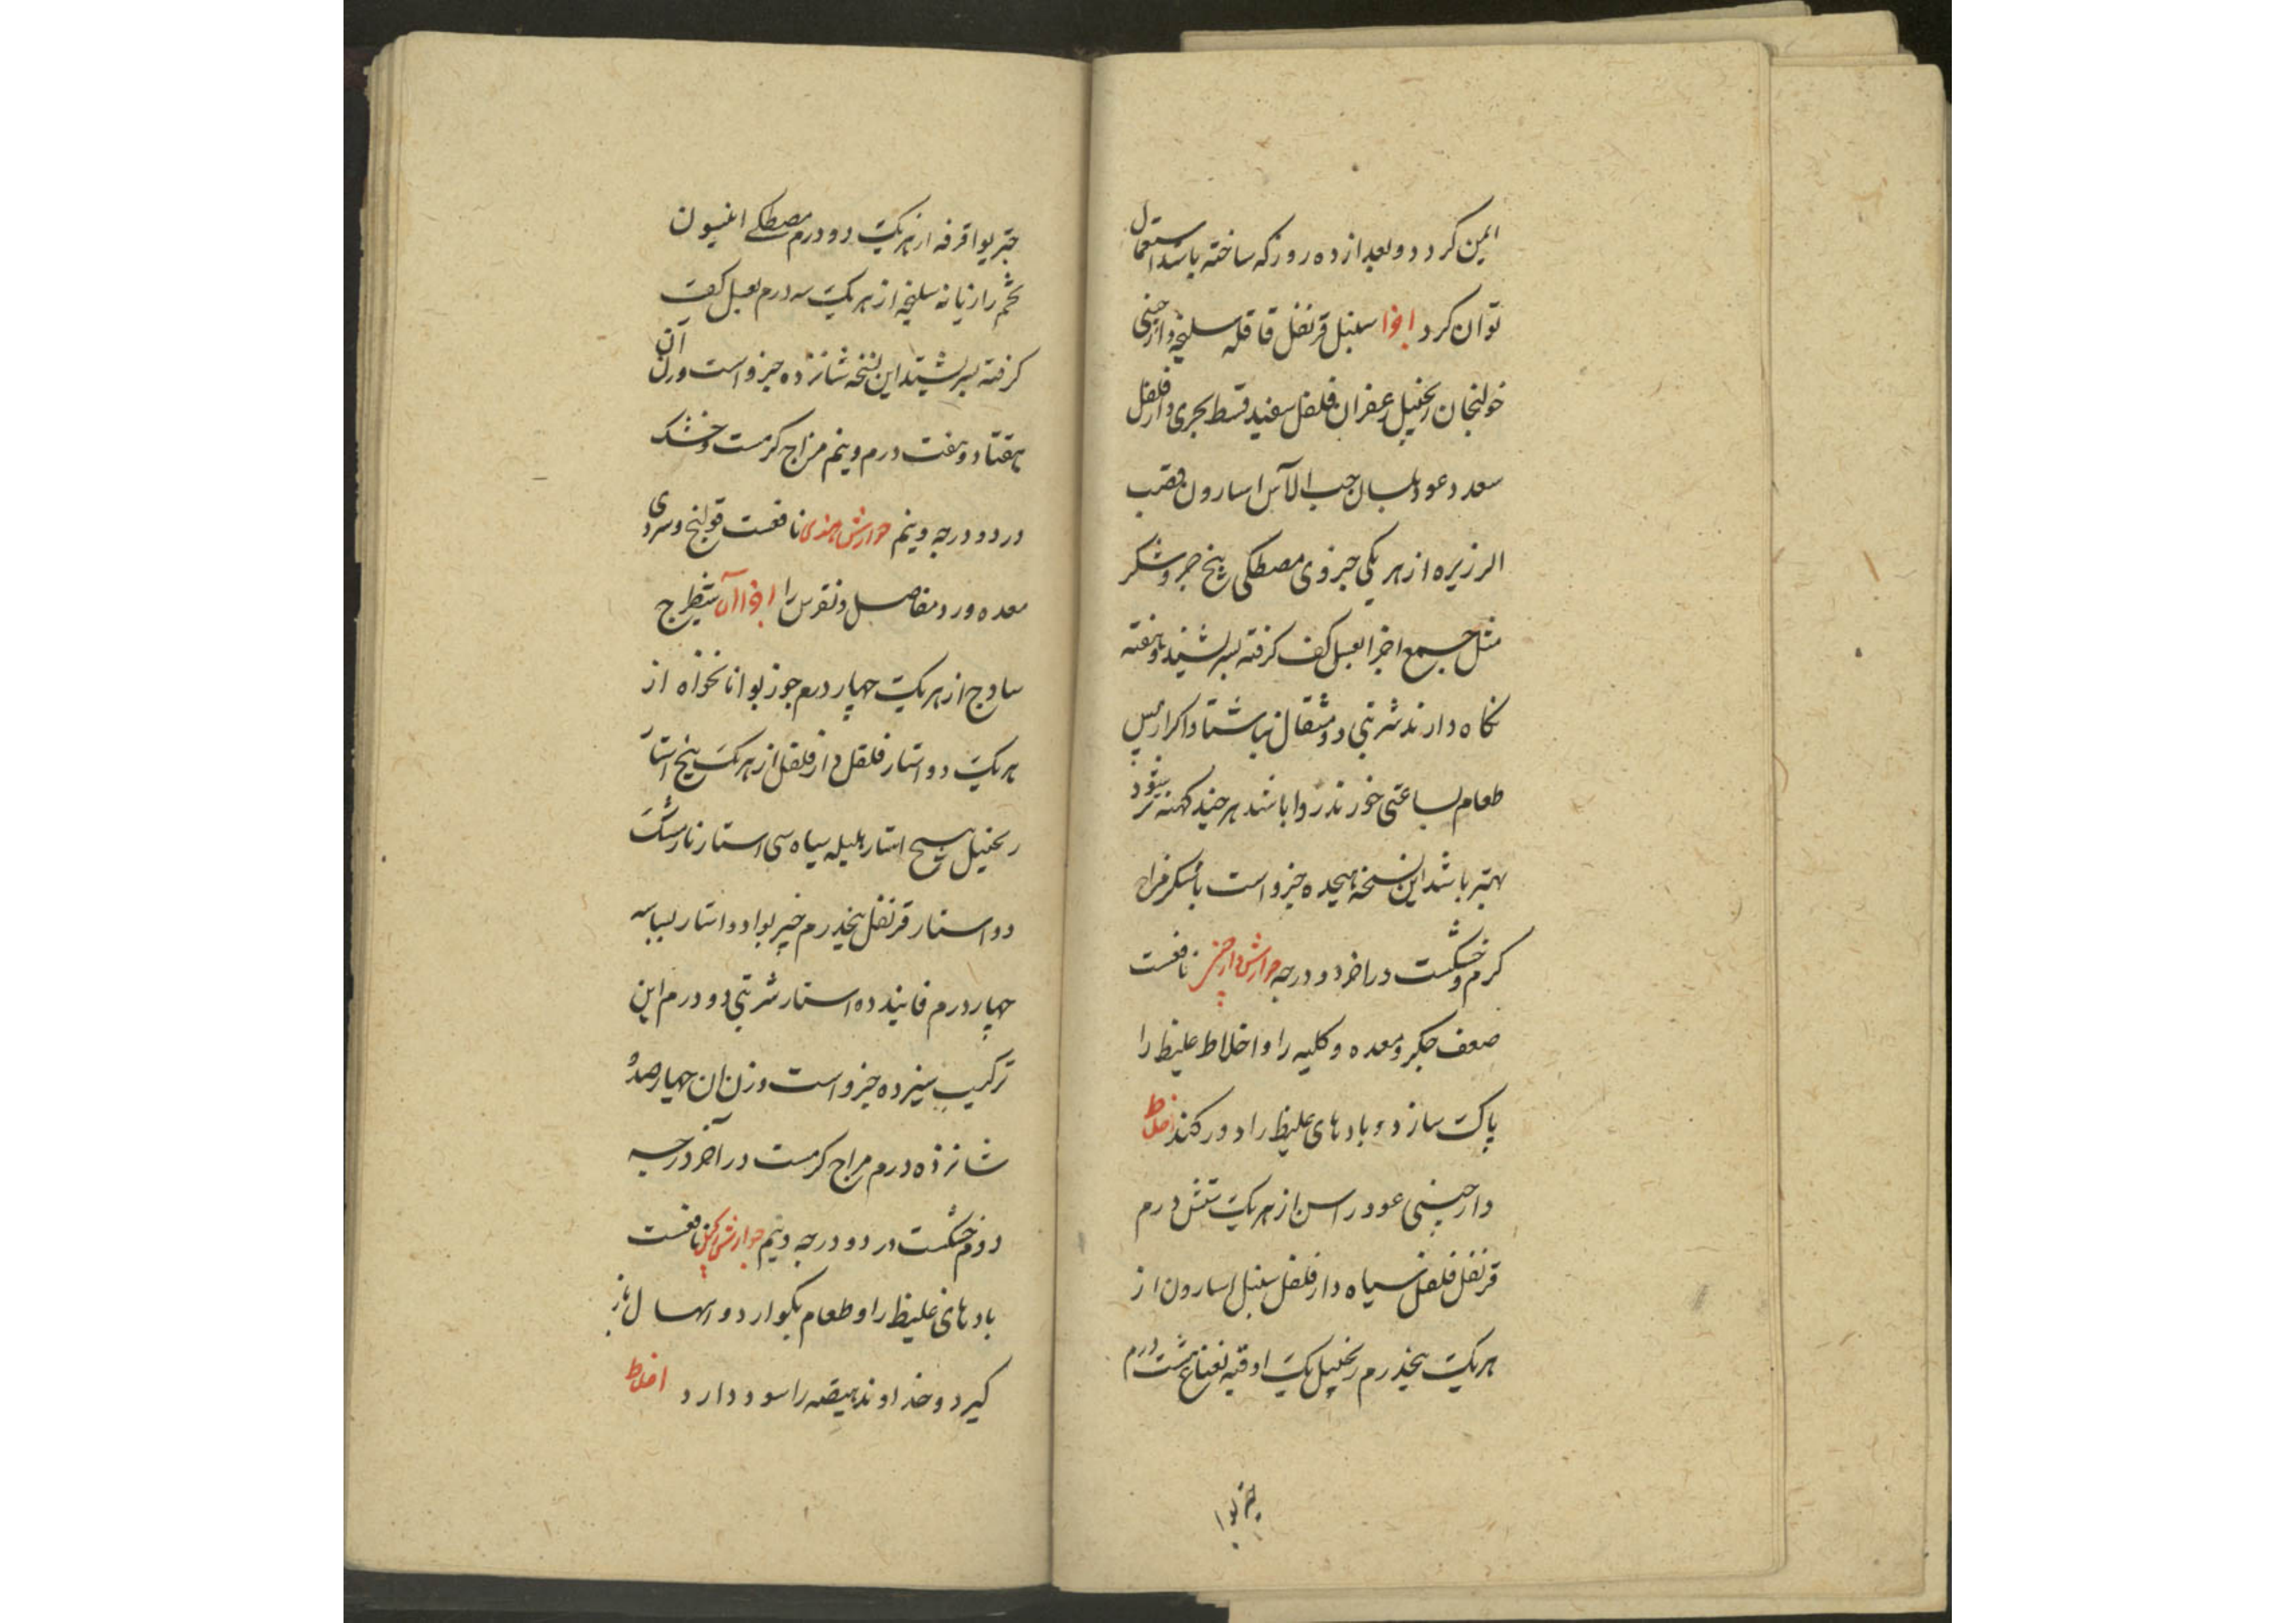 ایمن کردد و بعد از ده روز که ساخته باشد استعمال
توان کرد اجزا سنبل قرنفل قاقله سلیخه دارچینی
خولنجان زنجبیل زعفران فلفل سفید قسط بحری دارفلفل
سعد و عود بلسان حب الآس اسارون قصب
الزریره از هر یکی جزوی مصطکی پنج جزو شکر
مثل جمیع اجزا بعسل کف کرفته بسرشند دو هفته
نکاه دارند شربتی دو مثقال ناشتا و اکر از پس
طعام بساعتی خورند روا باشد هر چند کهنه تر شود
بهتر باشد این نسخه هیجده جزو است با شکر مزاج
کرم و خشکست در اخر دو درجه جوارش دارچینی نافعست
ضعف جکر و معده و کلیه را و اخلاط غلیظ را
پاک سازد و بادهای غلیظ را دور کند اخلاط
دارچینی عود راسن از هر یک شش درم
قرنفل فلفل سیاه دارفلفل سنبل اسارون از
هر یک پنجدرم زنجبیل یک اوقیه نعناع هشت درم
خیربوا
خیربوا قرفه از هر یک دو درم مصطکی انیسون
تخم رازیانه سلیخه از هر یک سه درم بعسل کف
کرفته بسرشند این نسخه شانزده جزو است وزن آن
هفتاد و هفت درم و نیم مزاج کرمست و خشک
در دو درجه و نیم جوارش هندی نافعست قولنج و سردی
معده و درد مفاصل و نقرس را اجزا آن شیطرج
سادج از هر یک چهار درم جوزبوا نانخواه از
هر یک دو استار فلفل دارفلفل از هر یک پنج استار
زنجبیل پنج استار هلیله سیاه سی استار نارمشک
دو استار قرنفل پنجدرم خیربوا دو استار بسباسه
چهار درم فانید ده استار شربتی دو درم این
ترکیب سیزده جزو است وزن ان چهارصد و
شانزده درم مزاج کرمست در آخر درجه
دوم خشکست در دو درجه و نیم جوارش نافعست
بادهای غلیظ را و طعام بکوارد و اسهال باز
کیرد و خداوند هیضه را سود دارد اخلاط